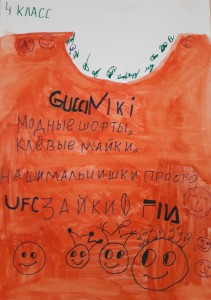 4 КЛАСС
GUCCI Miki
МОДНЫЕ ШОРТЫ,
КЛЁВЫЕ МАЙКИ,
НАШИ МАЛЬЧИШКИ ПРОСТО
UFC ЗАЙКИ